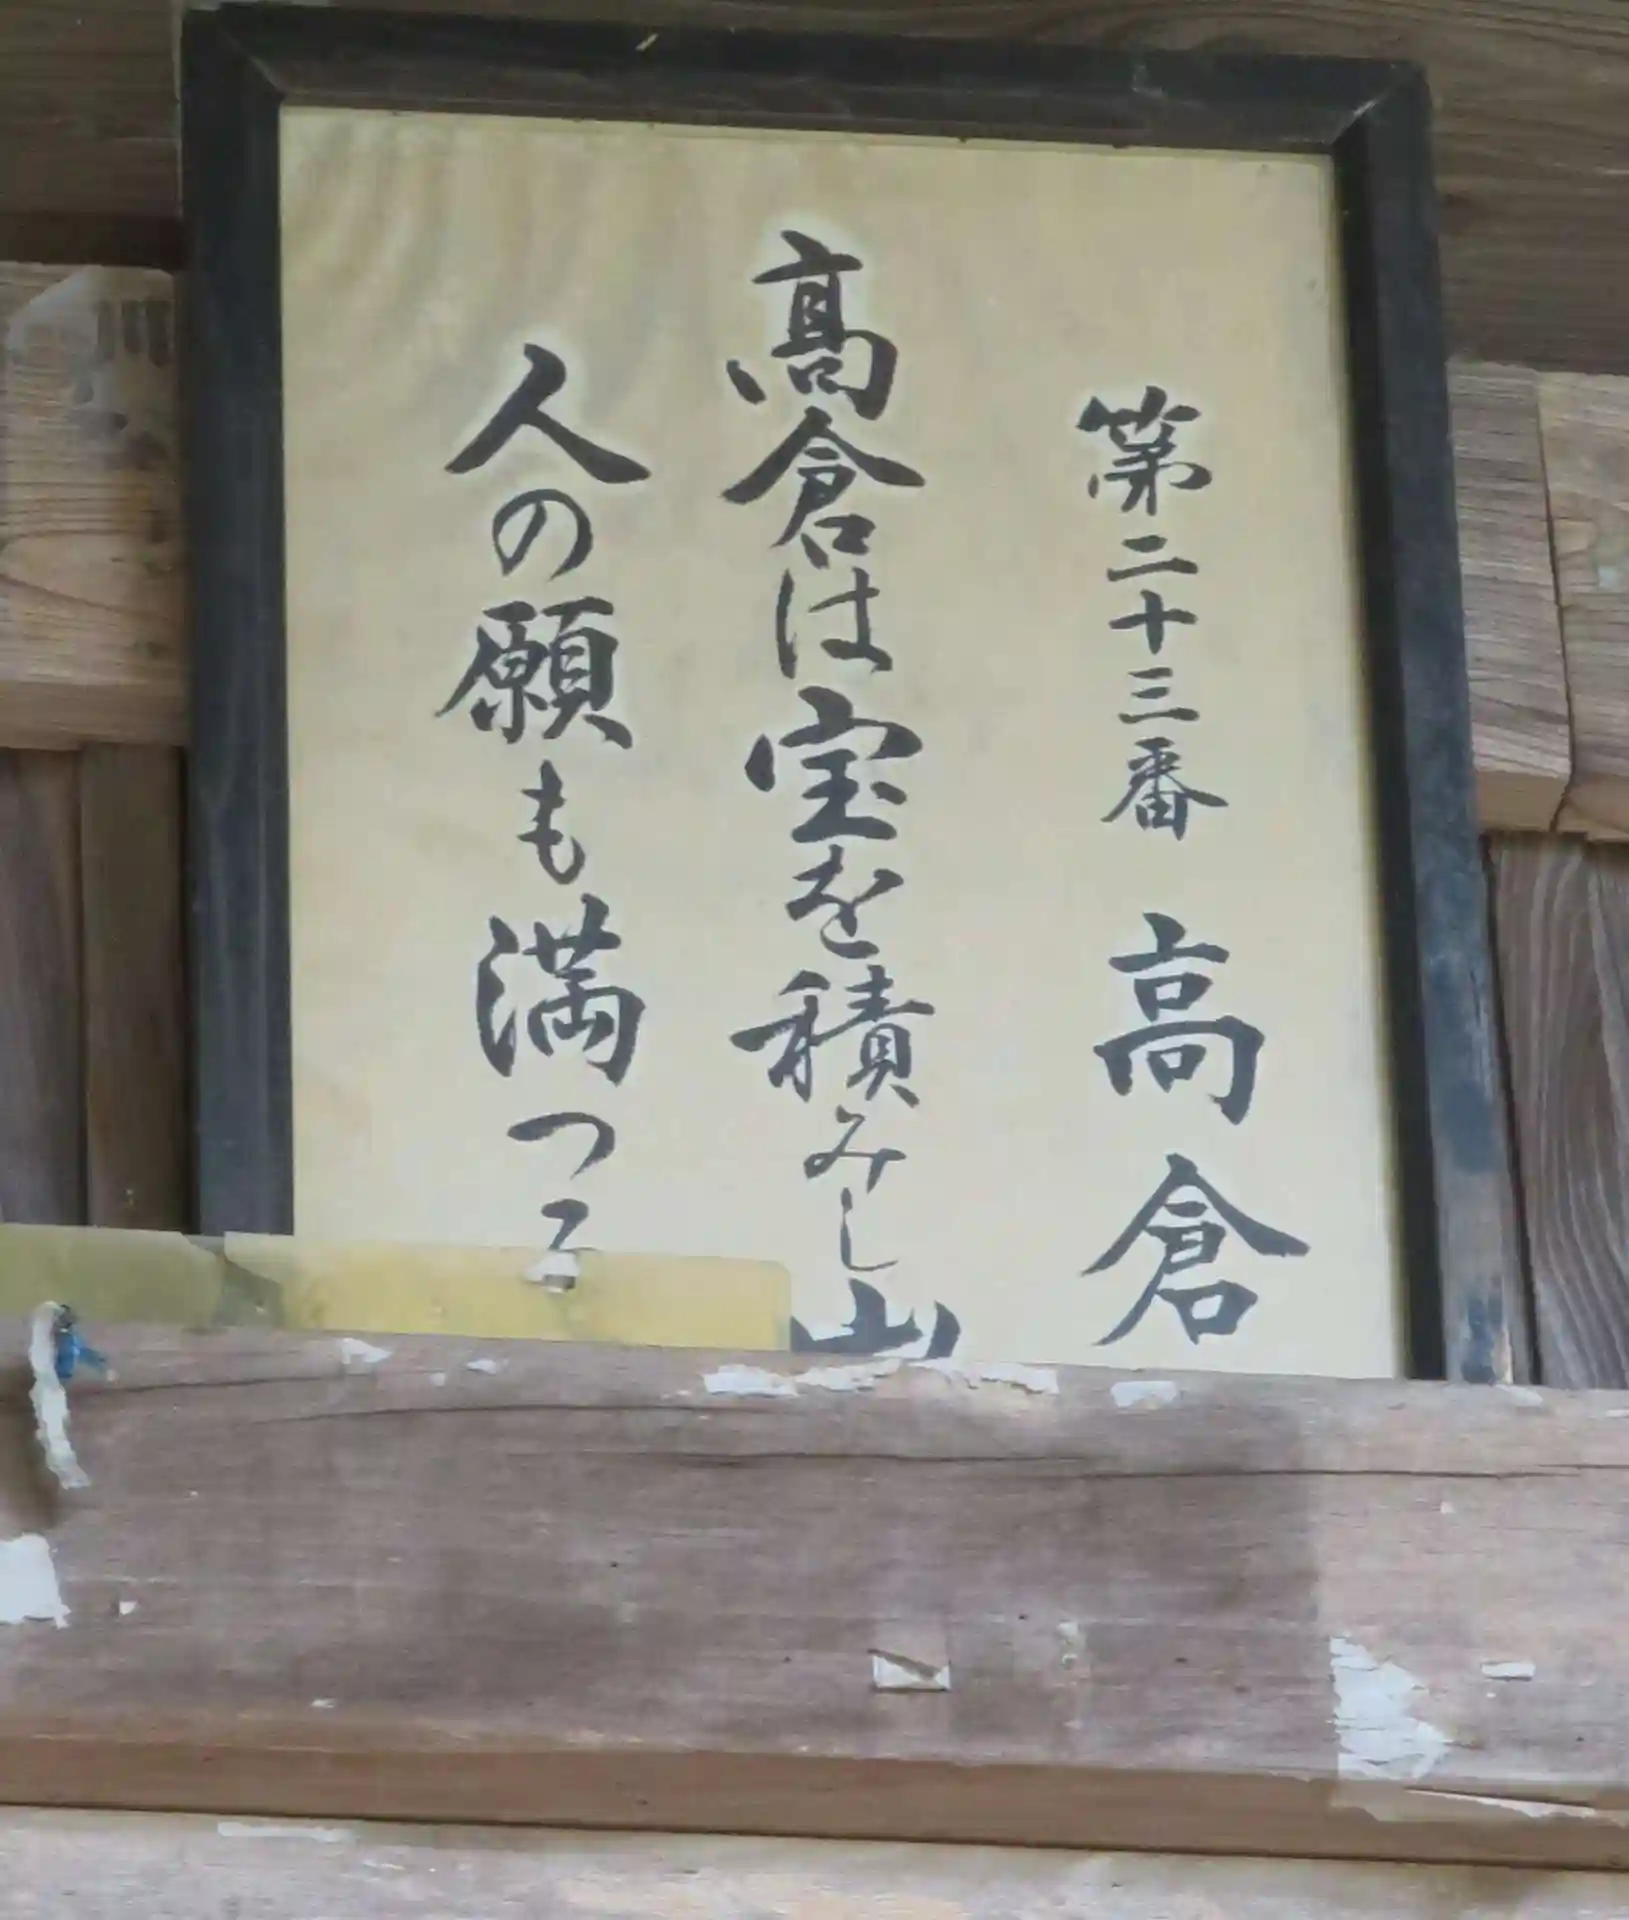 第二十三番 高倉
髙倉は宝を積みし山
人の願も満つる